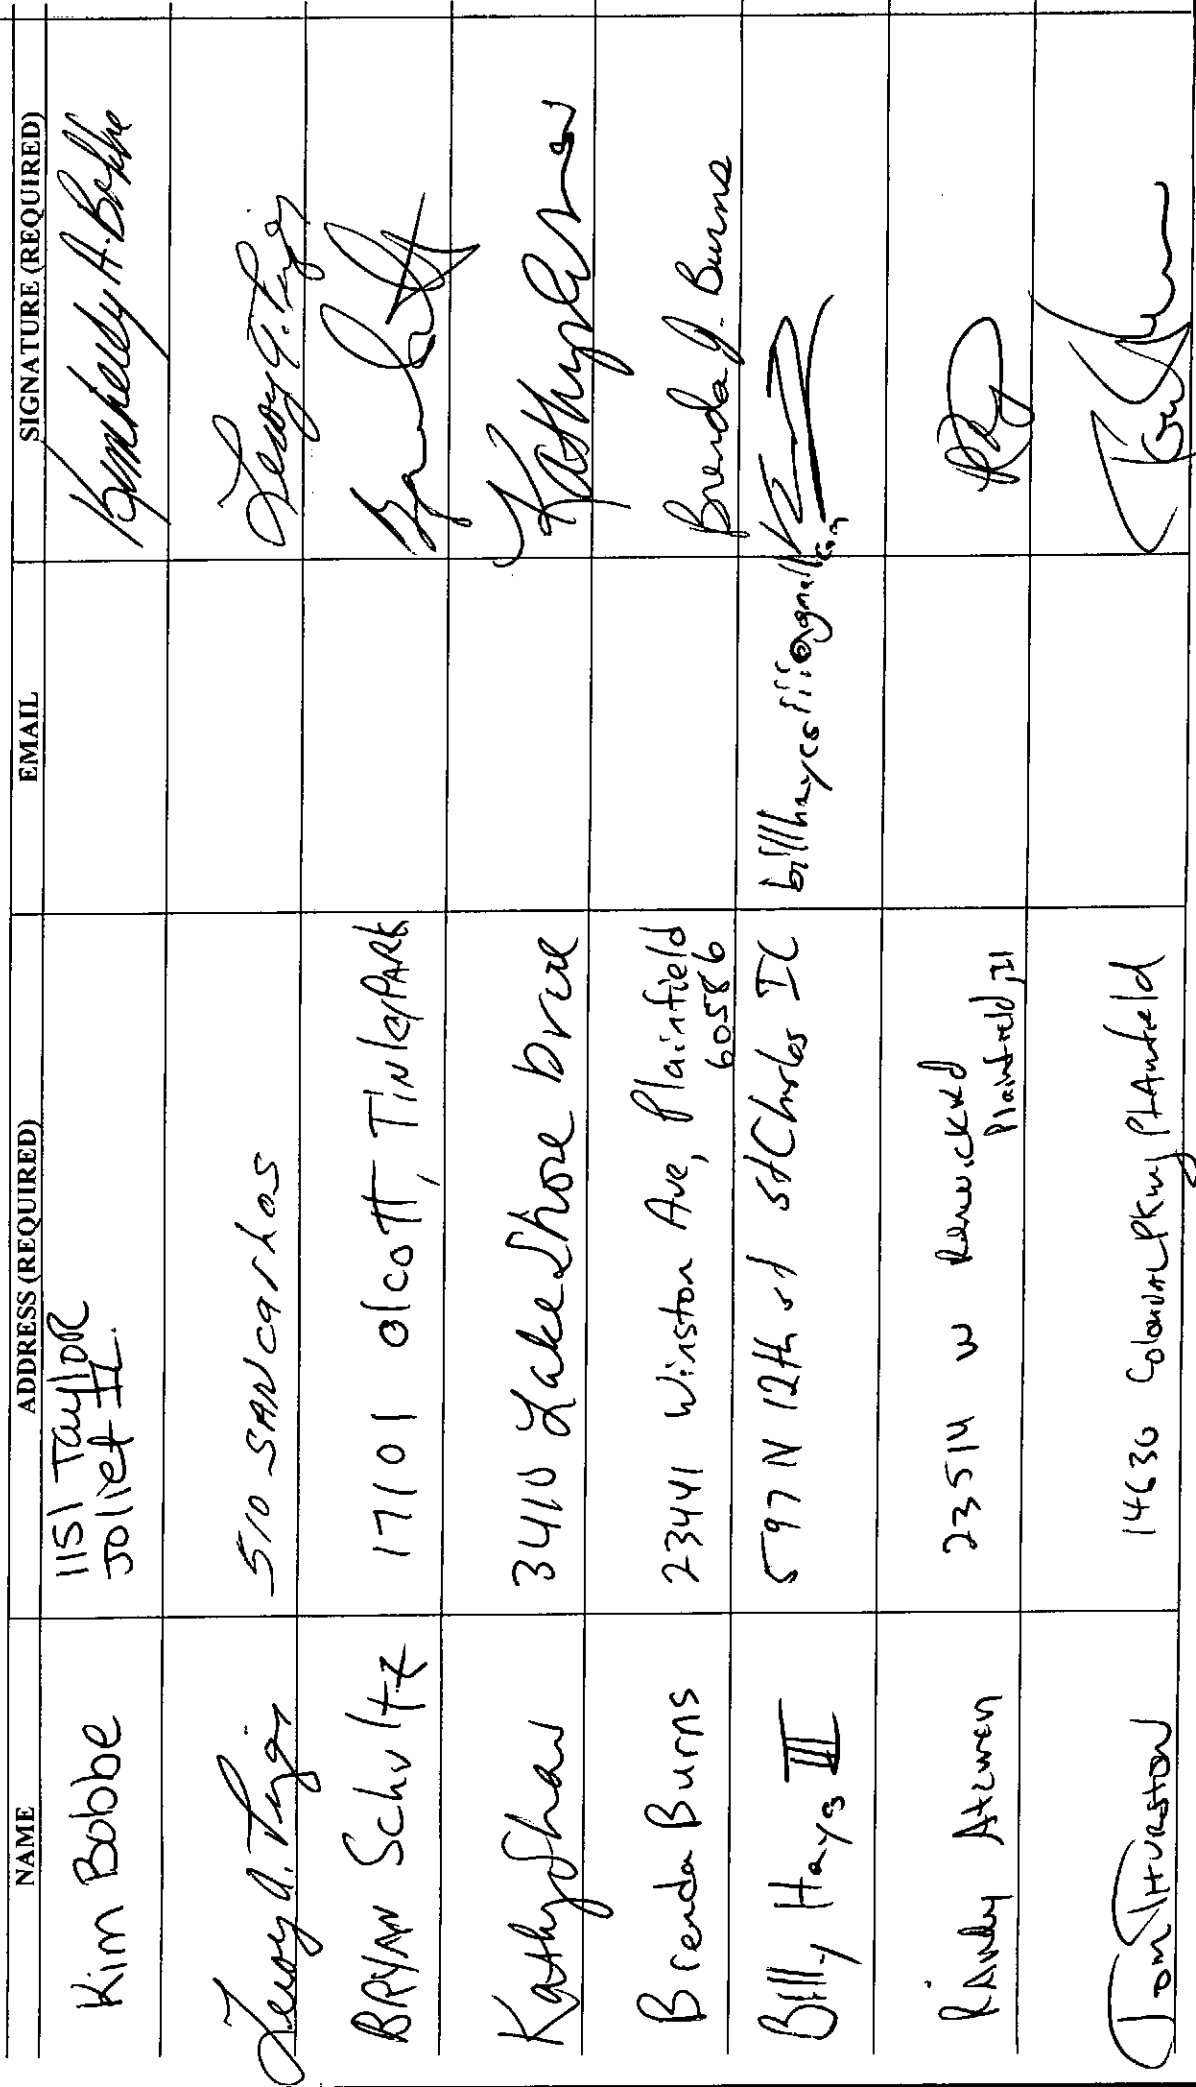 NAME ADDRESS (REQUIRED) EMAIL SIGNATURE (REQUIRED)
Kim Bobbe 1151 Taylor Kimberly A. Bobbe
Joliet IL.
Leroy A. 510 SAN carhos Leroy
BRYAN Schultz 17101 olcott, TINleyPARK
Kathy Shaw 3410 Lake Shore Drive Kathy Shaw
Brenda Burns 23441 Winston Ave, Plainfield Brenda J. Burns
60586
Billy Hays III 597 N 12th st St Charles IL
Randy 23514 W Renwick Rd
Plainfield, Il
Tom THURSTON 14630 Colonial PKwy PLAinfield